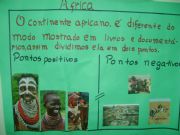 Africa
O continente africano, é diferente do
modo mostrado em livros e documentá-
rios, assim dividimos ela em dois pontos.
Pontos positivos
Pontos negativos